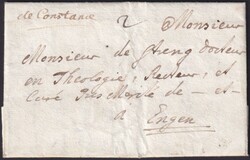 de Constance
2
Monsieur
Monsieur de Hreng docteur
en Theologie, Recteur, et
Curé Très Merité de - et -
a Engen